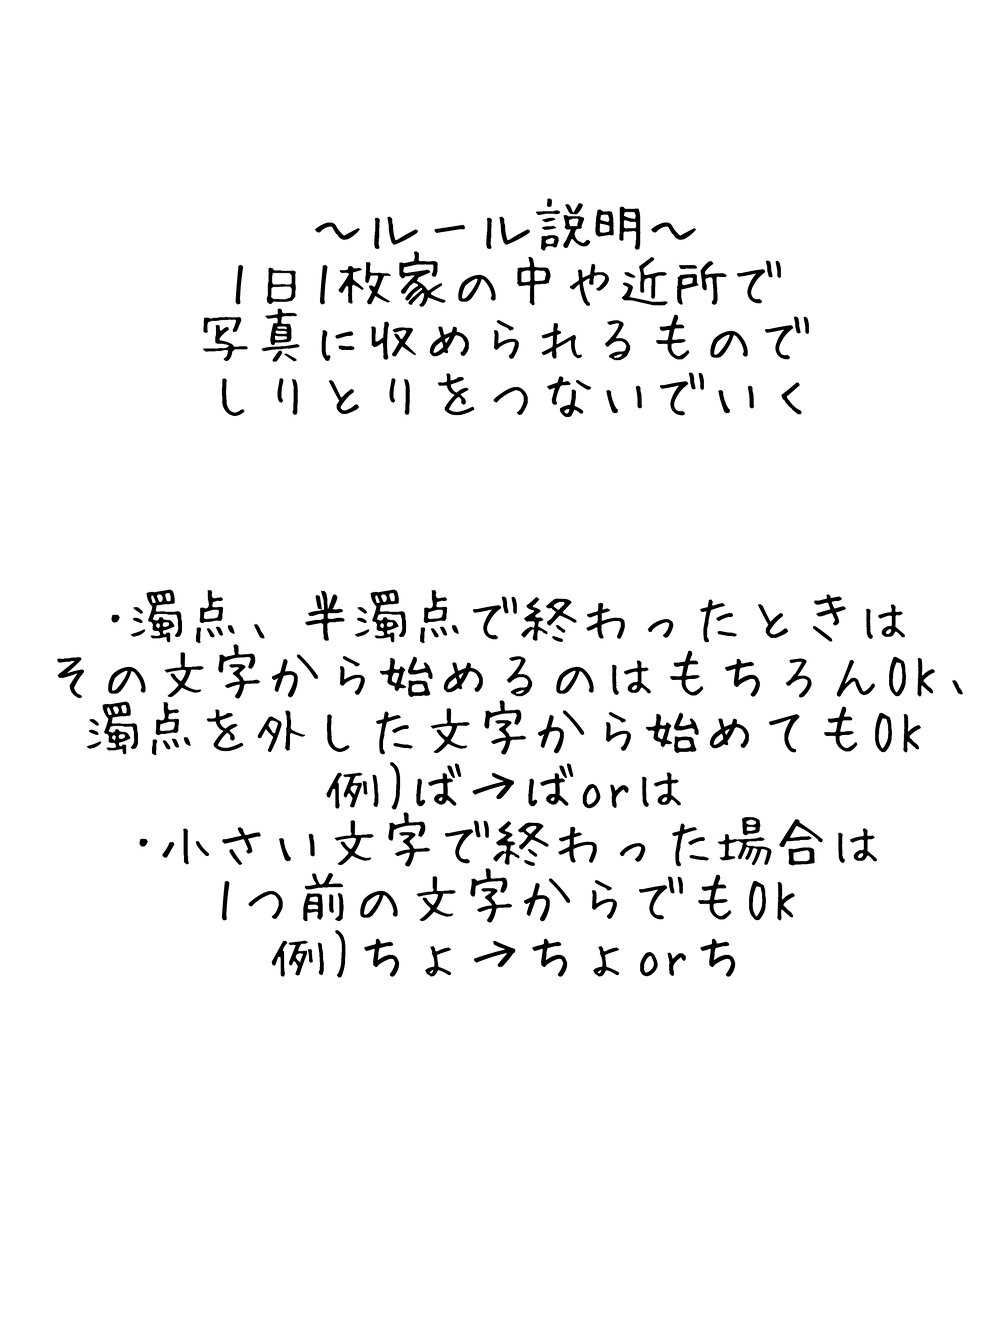 ～ルール説明～
1日1枚家の中や近所で
写真に収められるもので
しりとりをつないでいく
・濁点、半濁点で終わったときは
その文字から始めるのはもちろんOk、
濁点を外した文字から始めてもOk
例)ば→ばorは
・小さい文字で終わった場合は
1つ前の文字からでもOk
例)ちょ→ちょorち